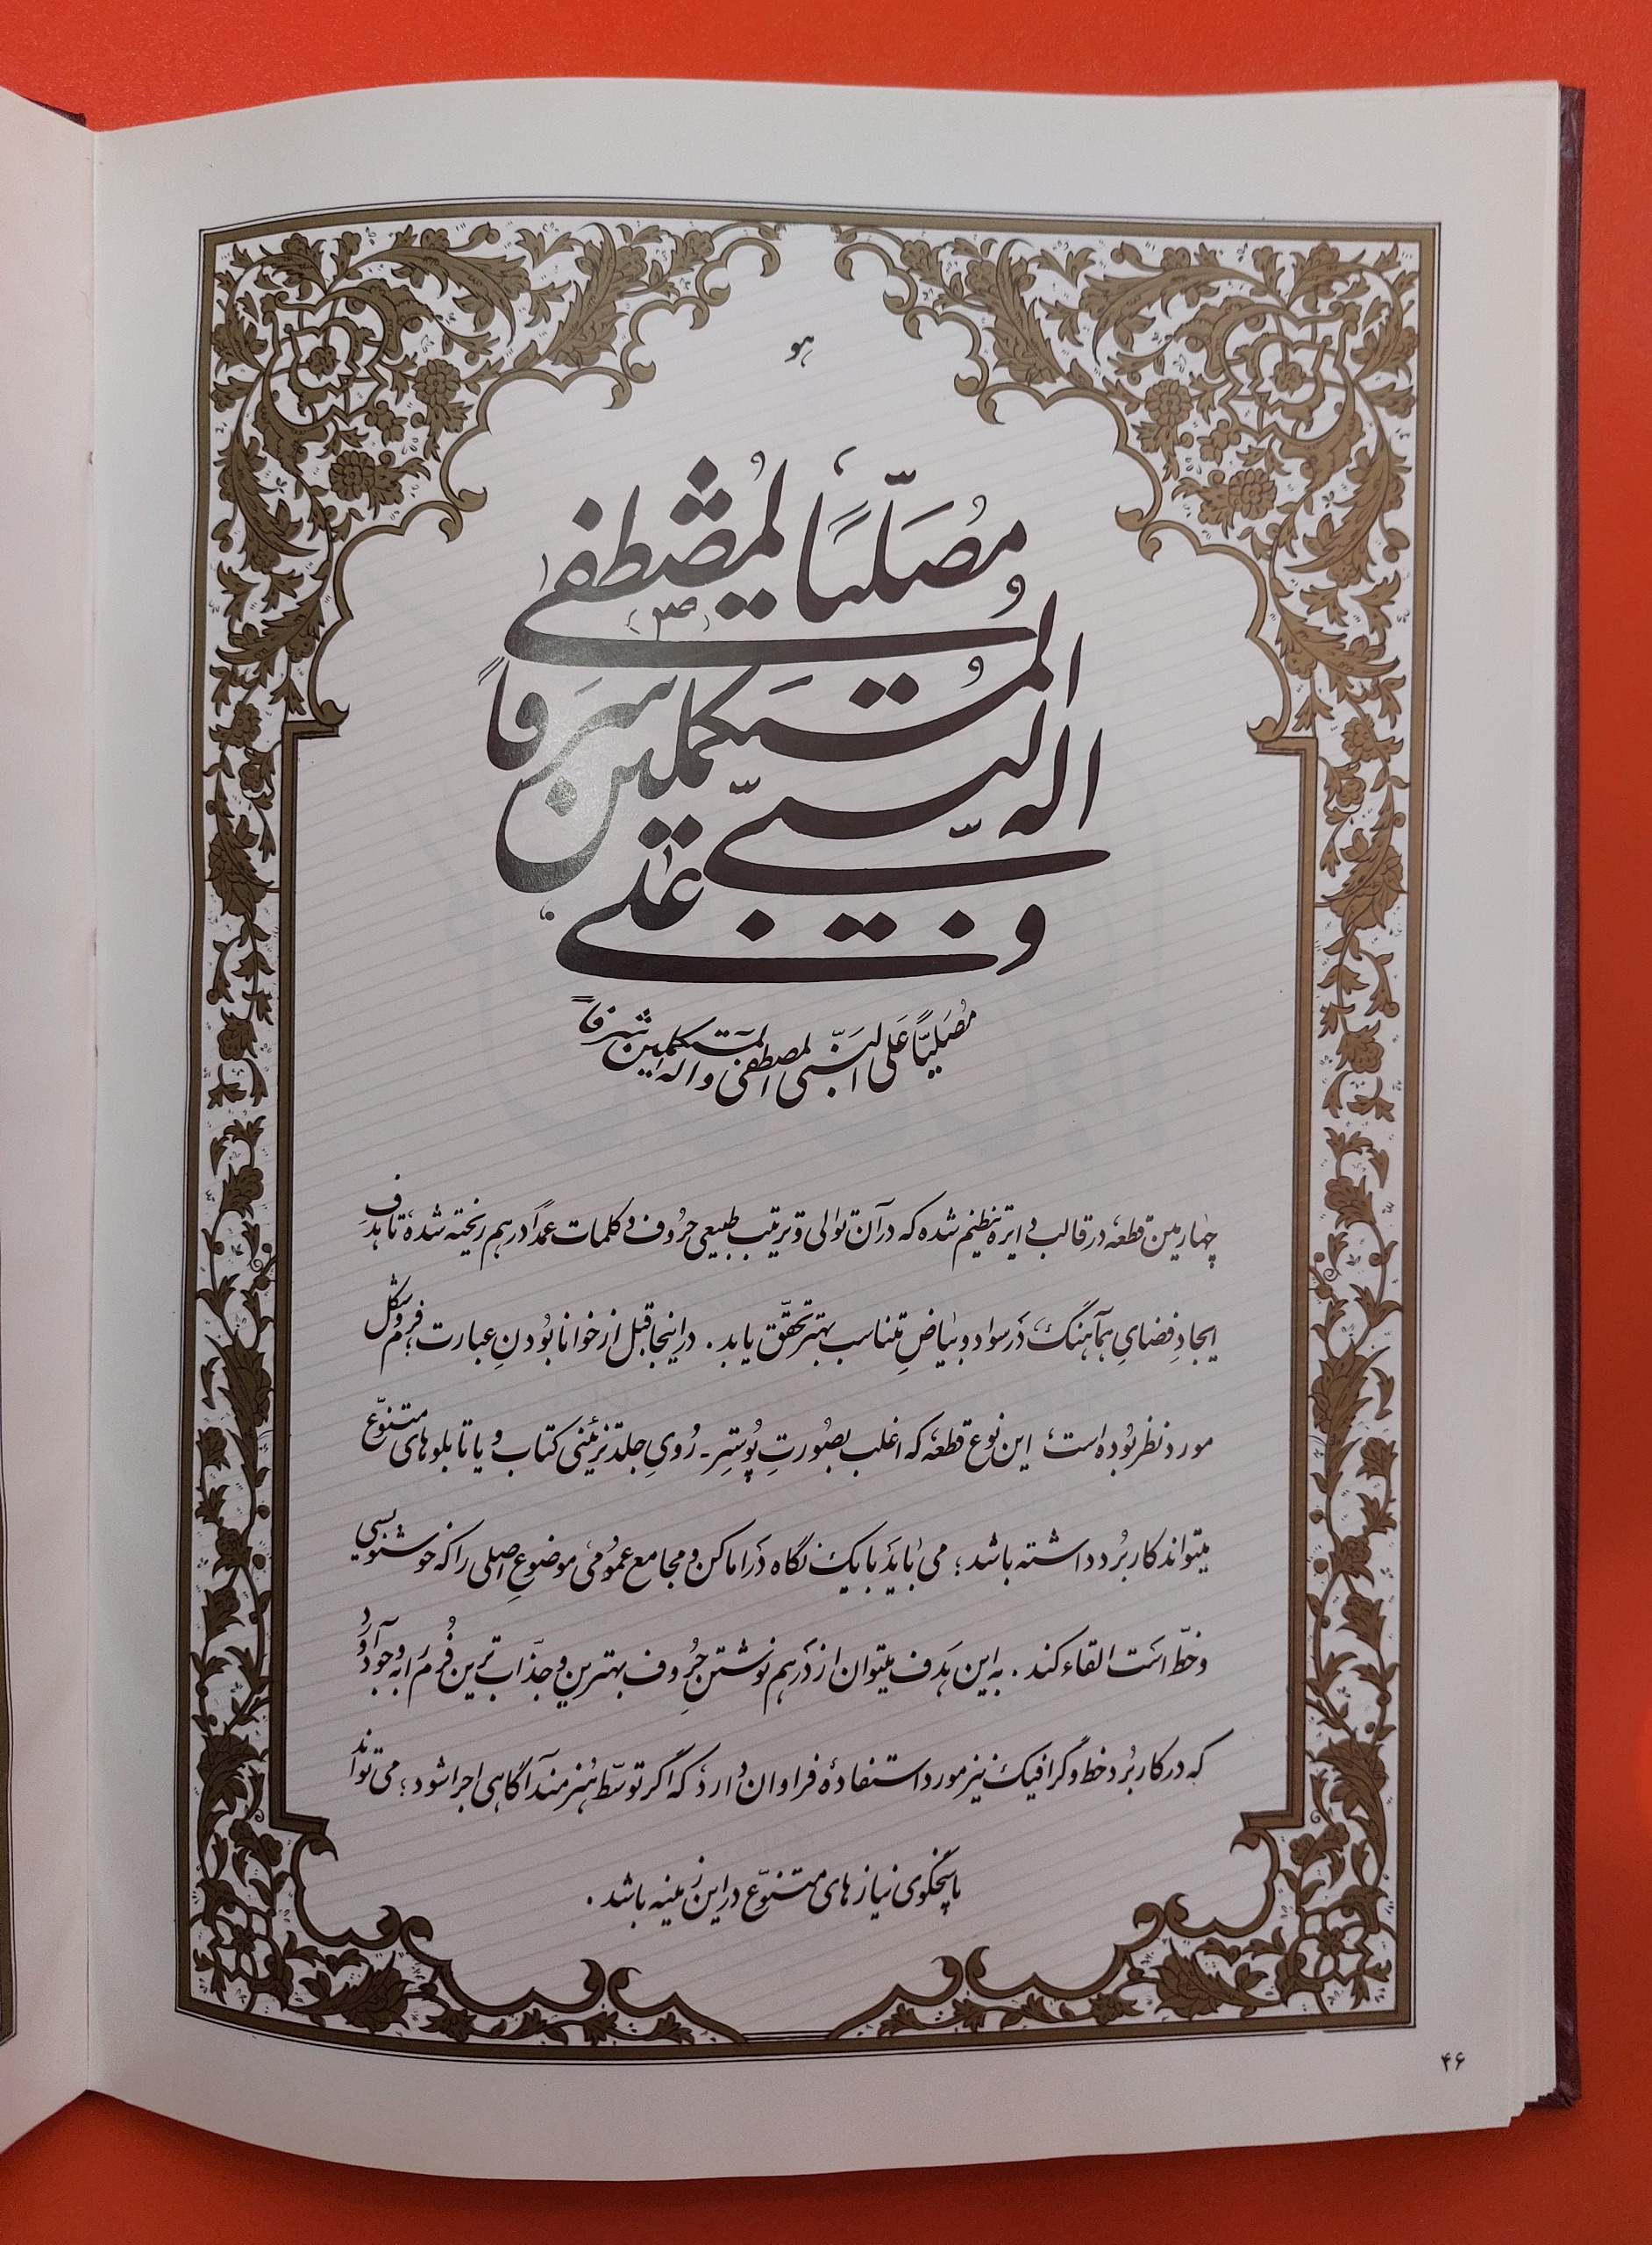 هو
مُصَلّیاً لمُصْطفی (ص)
المُستَکملین شَرَفاً
و اله النَّبی
علی
مُصَلّیاً عَلی النَبّی المصطفی و اله المستکملین شرفاً
چهارمین قطعه در قالب دایره تنظیم شده که در آن توالی و ترتیب طبیعی حروف و کلمات عمداً در هم ریخته شده تا هدفِ
ایجادِ فضایِ هماهنگ، دَر سواد و بیاضِ متناسب بهتر تحقّق یابد. در اینجا قبل از خوانا بُودنِ عبارت؛ فرم و شکل
مورد نظر بُوده است، این نوع قطعه که اغلب بصُورتِ پُوستِر ـ رُویِ جلد تزئینی کتاب و یا تابلوهای متنوّع
میتواند کاربُرد داشته باشد؛ می باید با یک نگاه دَر اماکن و مجامع عمُومی موضوع اصلی را که خوشنویسی
و خطّ است القاء کند. به این هَدف میتوان از دَر هم نوشتن حرُوف بهترین و جذّاب ترین فُرم را به وجود آورد
که در کاربُرد خط و گرافیک نیز مورد استفاده فراوان دارد که اگر توسّط هُنرمند آگاهی اجرا شود؛ می تواند
پاسخگوی نیازهای متنوّع در این زمینه باشد.
۴۶